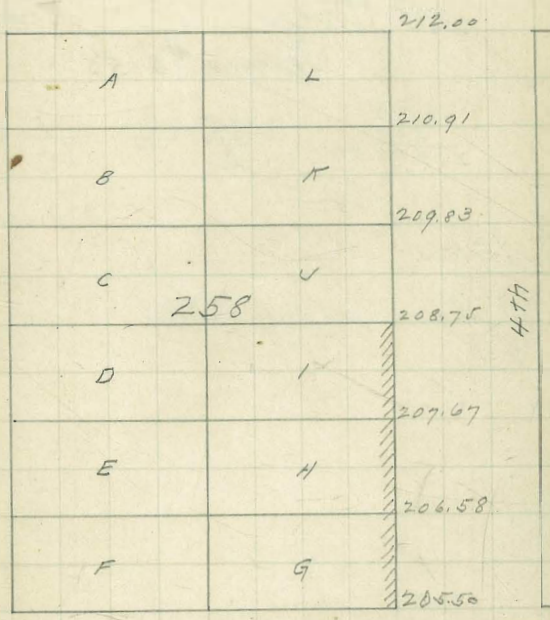 212.00
A L
210.91
B K
209.83
C J
258
208.75
4th
D I
207.67
E H
206.58
F G
205.50